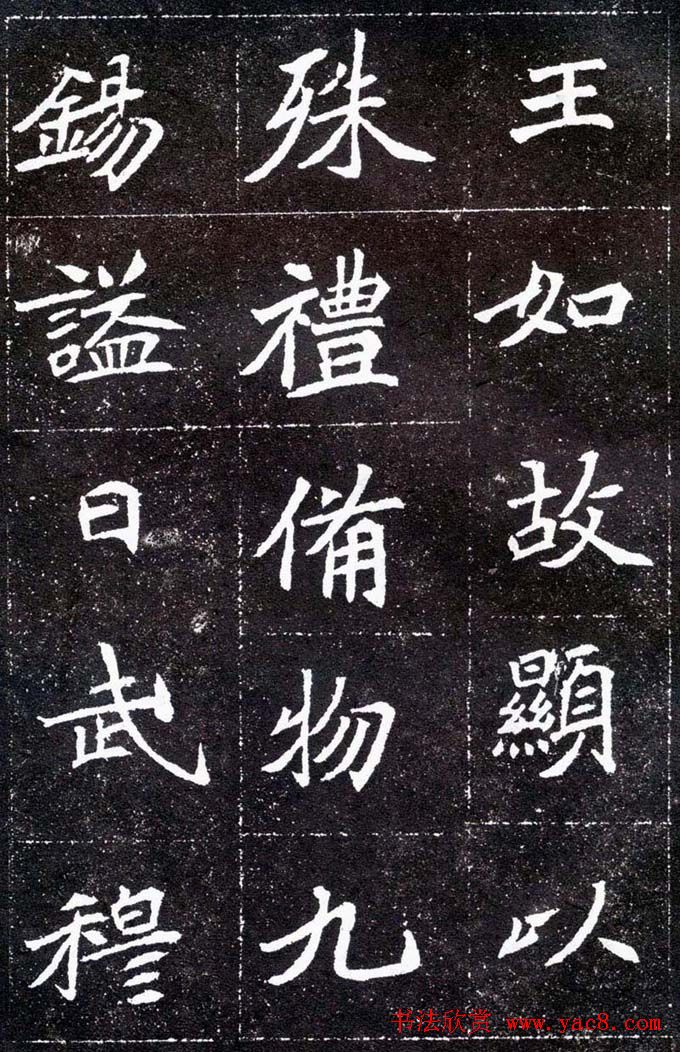 王如故顯以
殊禮備物九
錫謚曰武穆
书法欣赏 www.yac8.com